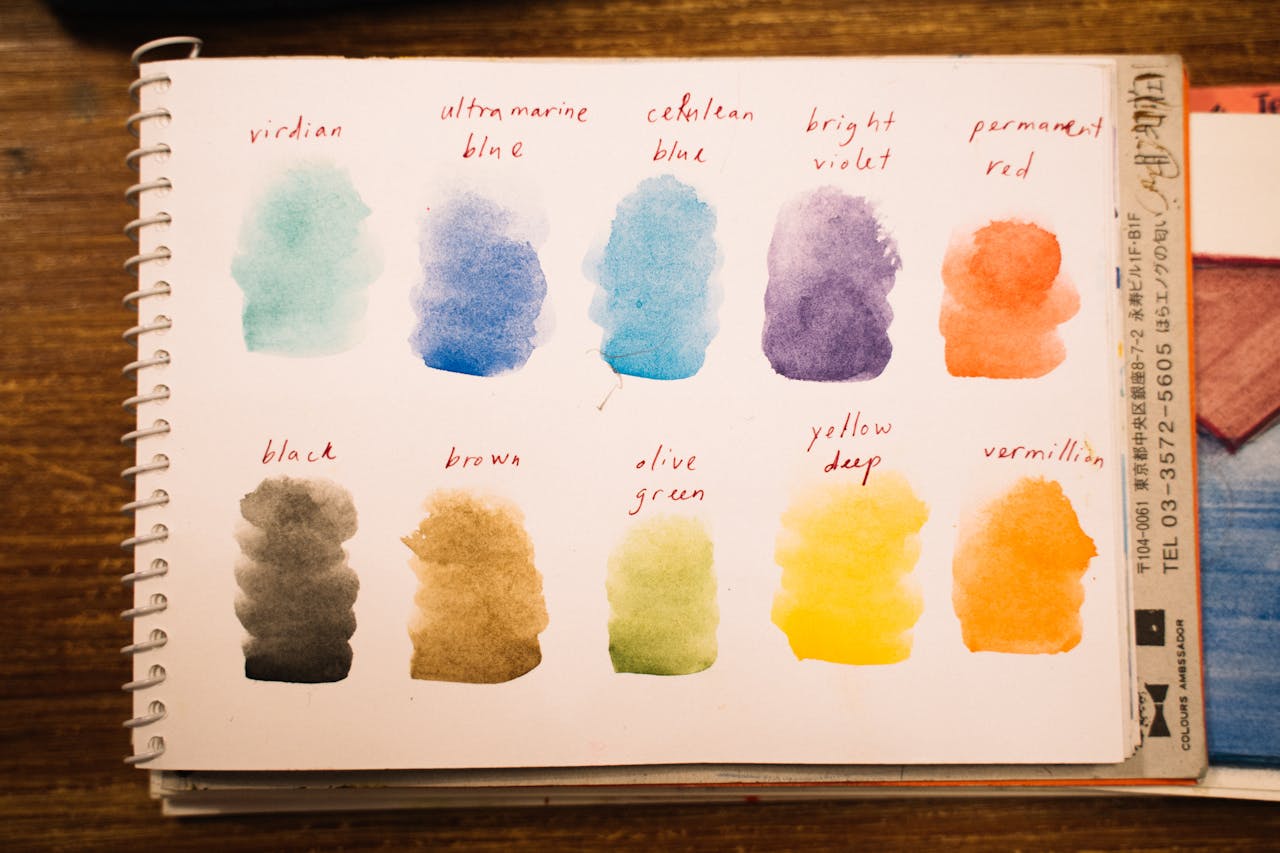 virdian
ultramarine
blue
cerulean
blue
bright
violet
permanent
red
black
brown
olive
green
yellow
deep
vermillion
〒104-0061 東京都中央区銀座8-7-2 永寿ビル1F・B1F
TEL 03-3572-5605 ほらエノグの匂い
COLOURS AMBSSADOR
Te